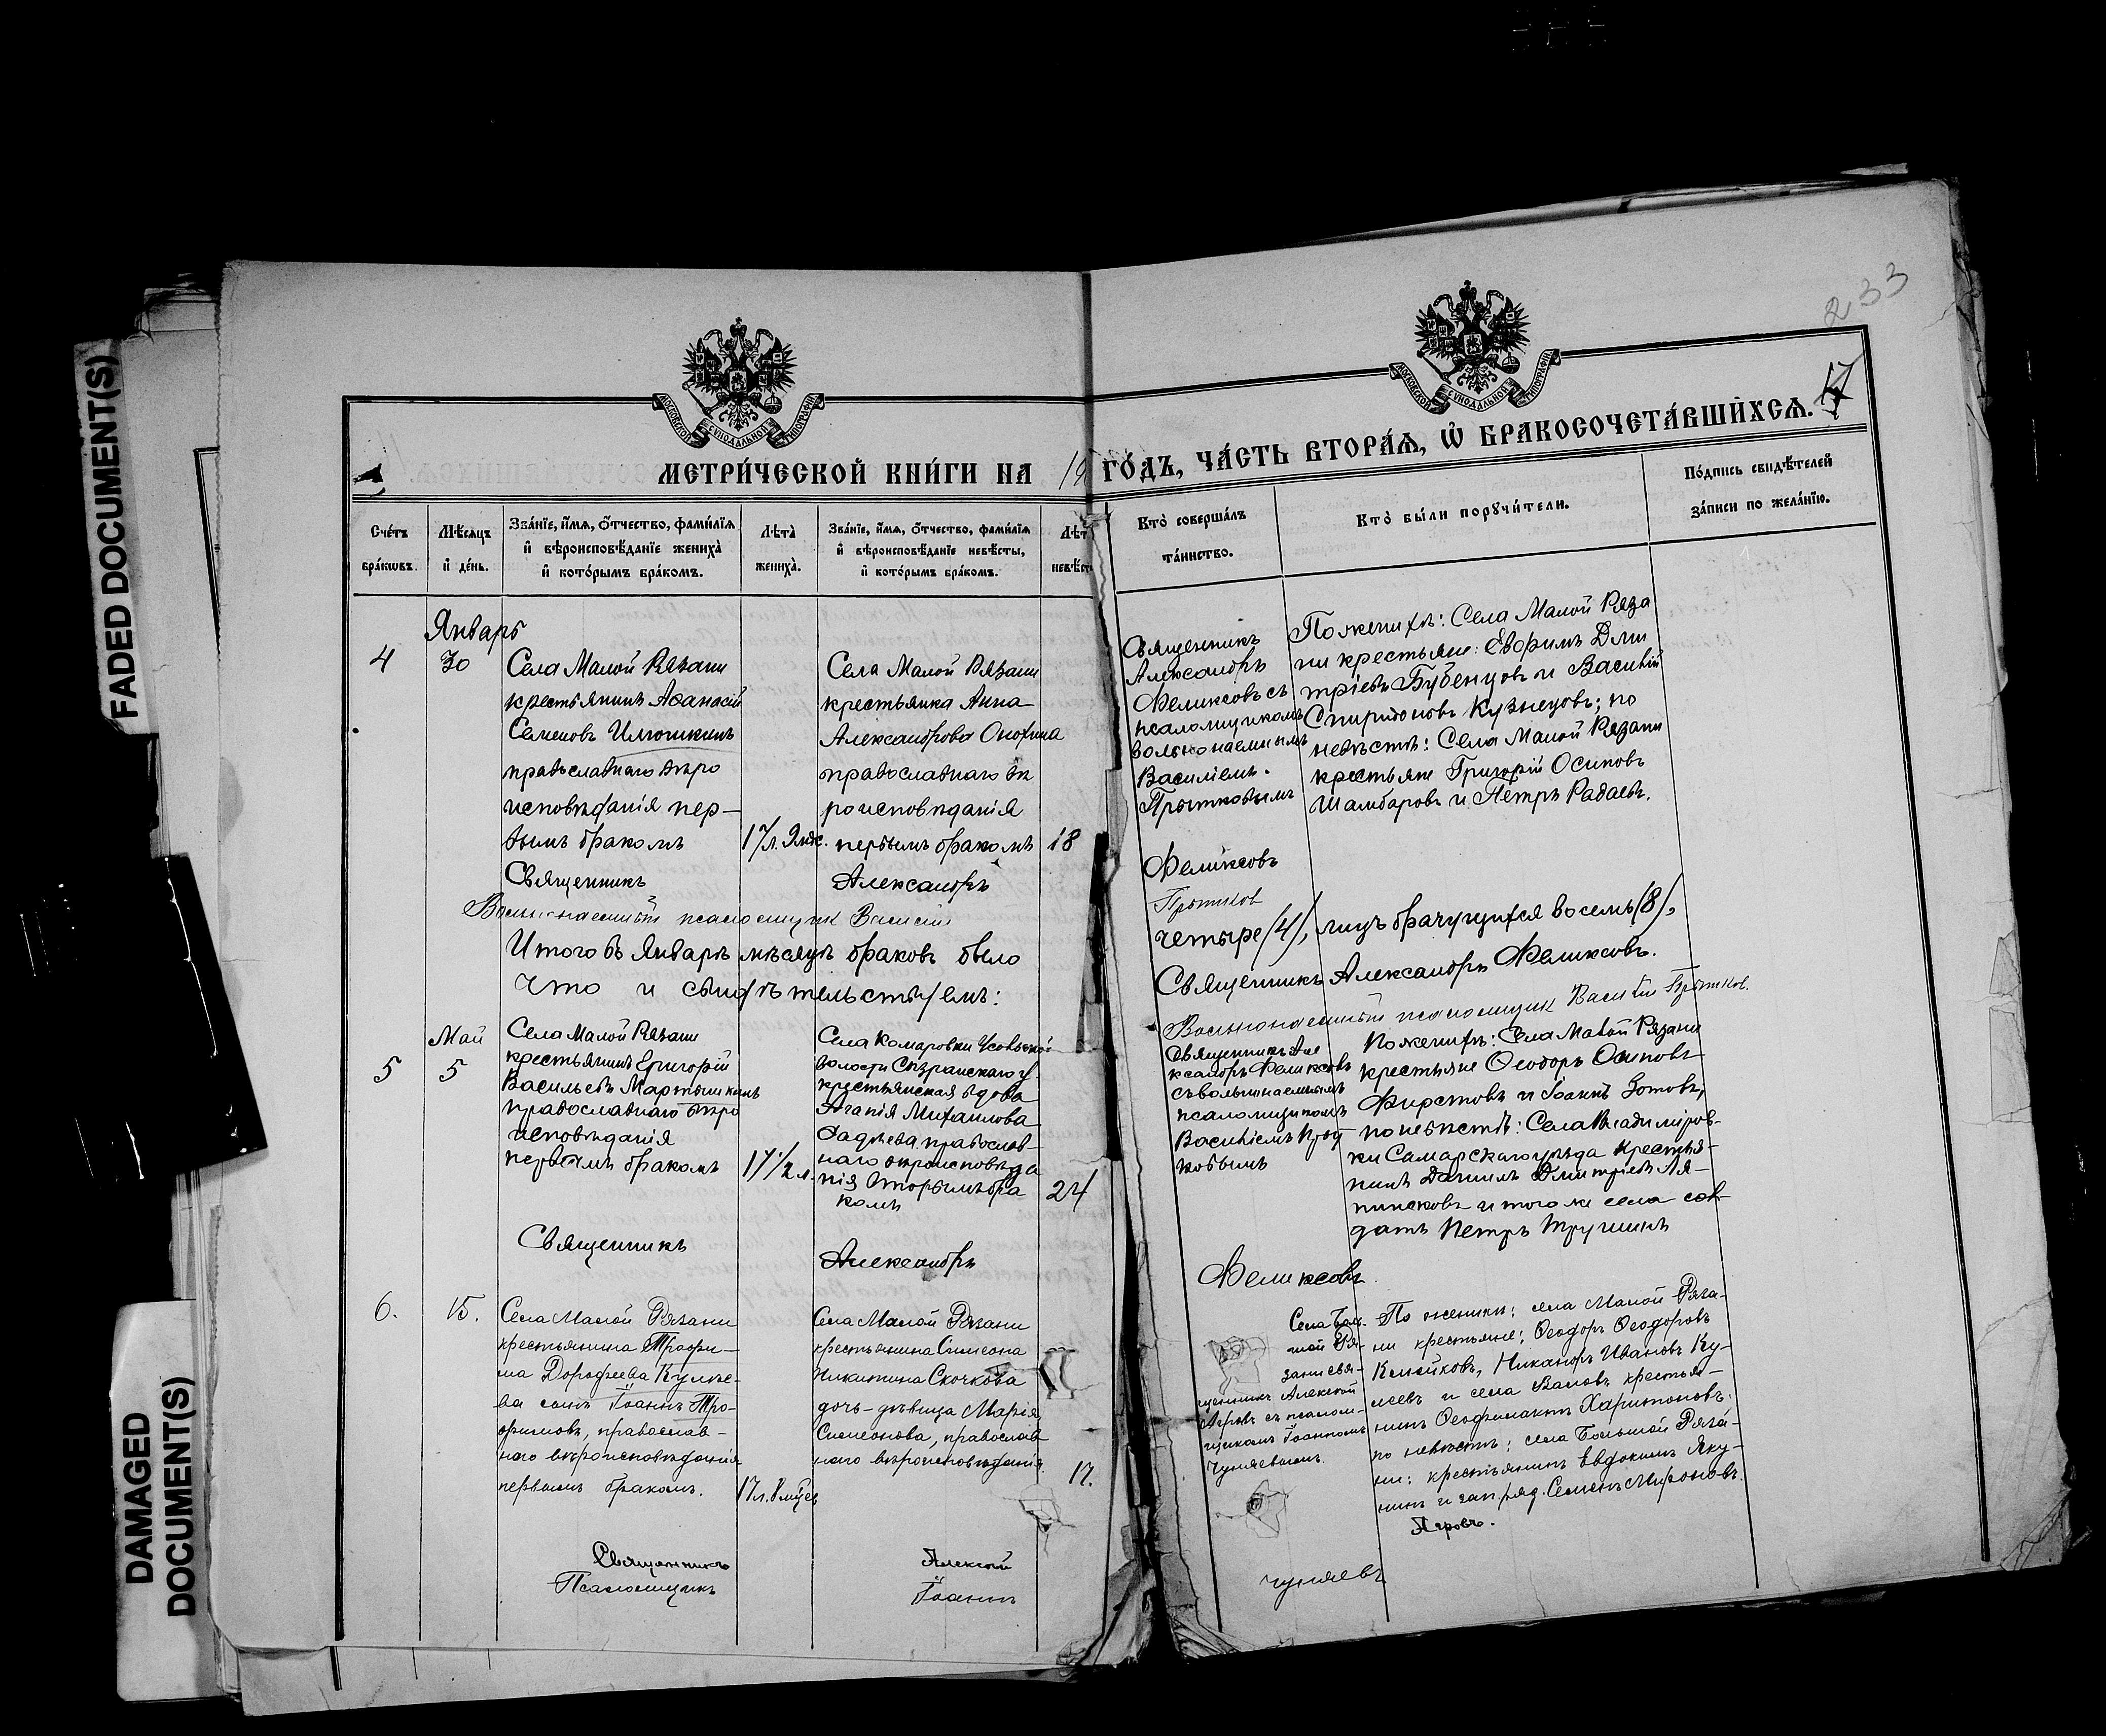 FADED DOCUMENT(S)
DAMAGED
DOCUMENT(S)
233
17
МОСКОВСКОЙ СѴНОДАЛЬНОЙ ТИПОГРАФІИ
МОСКОВСКОЙ СѴНОДАЛЬНОЙ ТИПОГРАФІИ
МЕТРИ́ЧЕСКОЙ КНИ́ГИ НА 19
ГО́ДЪ, ЧА́СТЬ ВТОРА́Я, Ѡ БРАКОСОЧЕТА́ВШИХСЯ.
Сче́тъ
бра́кѡвъ.
Мѣ́сяцъ
и҆ де́нь.
Зва́нїе, и҆́мя, ѻ҆́тчество, фами́лїя
и҆ вѣроисповѣ́данїе жениха̀
и҆ кото́рымъ бра́комъ.
Лѣта̀
жениха̀.
Зва́нїе, и҆́мя, ѻ҆́тчество, фами́лїя
и҆ вѣроисповѣ́данїе невѣ́сты,
и҆ кото́рымъ бра́комъ.
Лѣт
невѣст
Кто̀ соверша́лъ
та́инство.
Кто̀ бы́ли порꙋчи́тели.
По́дпись свидѣ́телей
за́писи по жела́нїю.
Январь
4
30
Села Малой Рязани
крестьянинъ Аѳанасій
Семеновъ Илюшкинъ
православнаго вѣро
исповѣданія пер-
вымъ бракомъ
17л. 9 мѣс.
Села Малой Рязани
крестьянка Анна
Александрова Онохина
православнаго вѣ
роисповѣданія
первымъ бракомъ
18
Священникъ
Александръ
Феликсовъ съ
псаломщикомъ
вольнонаемнымъ
Василіемъ
Прытковымъ
По женихѣ: Села Малой Ряза
ни крестьяне: Евѳимъ Дми
тріевъ Бубенцовъ и Василій
Спиридоновъ Кузнецовъ; по
невѣстѣ: Села Малой Рязани
крестьяне Григорій Осиповъ
Шамбаровъ и Петръ Радаевъ.
Священникъ Александръ Феликсовъ
Вольнонаемный псаломщик Василій Прытков
Итого въ Январѣ мѣсяцѣ браковъ было четыре (4), лицъ брачущихся восемь (8),
Что и свидѣтельствуемъ: Священникъ Александръ Феликсовъ.
Вольнонаемный псаломщик Василій Прытков.
Май
5
5
Села Малой Рязани
крестьянинъ Григорій
Васильевъ Мартышкинъ
православнаго вѣро
исповѣданія
первымъ бракомъ
17 1/2 л.
Села Комаровки Усольской
волости Сызранскаго у.
крестьянская вдова
Агапія Михаилова
Фадѣева православ-
наго вѣроисповѣда
нія вторымъ бра
комъ
24
Священникъ Але
ксандръ Феликсовъ
съ вольнонаемнымъ
псаломщикомъ
Василіемъ Прыт
ковымъ
По женихѣ: Села Малой Рязани
крестьяне Ѳеодоръ Осиповъ
Фирстовъ и Іоаннъ Зотовъ,
по невѣстѣ: Села Владиміров-
ки Самарскаго уѣзда крестья-
нинъ Даніилъ Дмитріевъ Ля-
пинсковъ и того же села сол-
датъ Петръ Тругшинъ
Священникъ Александръ Феликсовъ.
6.
15.
Села Малой Рязани
крестьянина Трофи-
ма Дороѳеева Кулже-
ва сынъ Іоаннъ Тро-
фимовъ, православ-
наго вѣроисповѣданія
первымъ бракомъ.
17 л. 8 мѣсцев
Села Малой Рязани
крестьянина Симеона
Никитина Скочкова
дочь-дѣвица Марія
Симеонова, православ
наго вѣроисповѣданія.
17.
Села Боль-
шой Ря-
зани свя-
щенникъ Алексѣй
Агровъ съ псалом-
щикомъ Іоанномъ
Чуняевымъ.
По женихѣ: села Малой Ряза-
ни крестьяне; Ѳеодоръ Ѳеодоровъ
Клюйковъ, Никаноръ Ивановъ Ку-
леевъ и села Валовъ крестья-
нинъ Ѳеофилактъ Харитоновъ.
по невѣстѣ: села Большой Ряза-
ни: крестьянинъ Евдокимъ Яку-
нинъ и зап. ряд. Семенъ Мироновъ.
Священникъ Алексѣй Агровъ.
Псаломщикъ Іоаннъ Чуняевъ